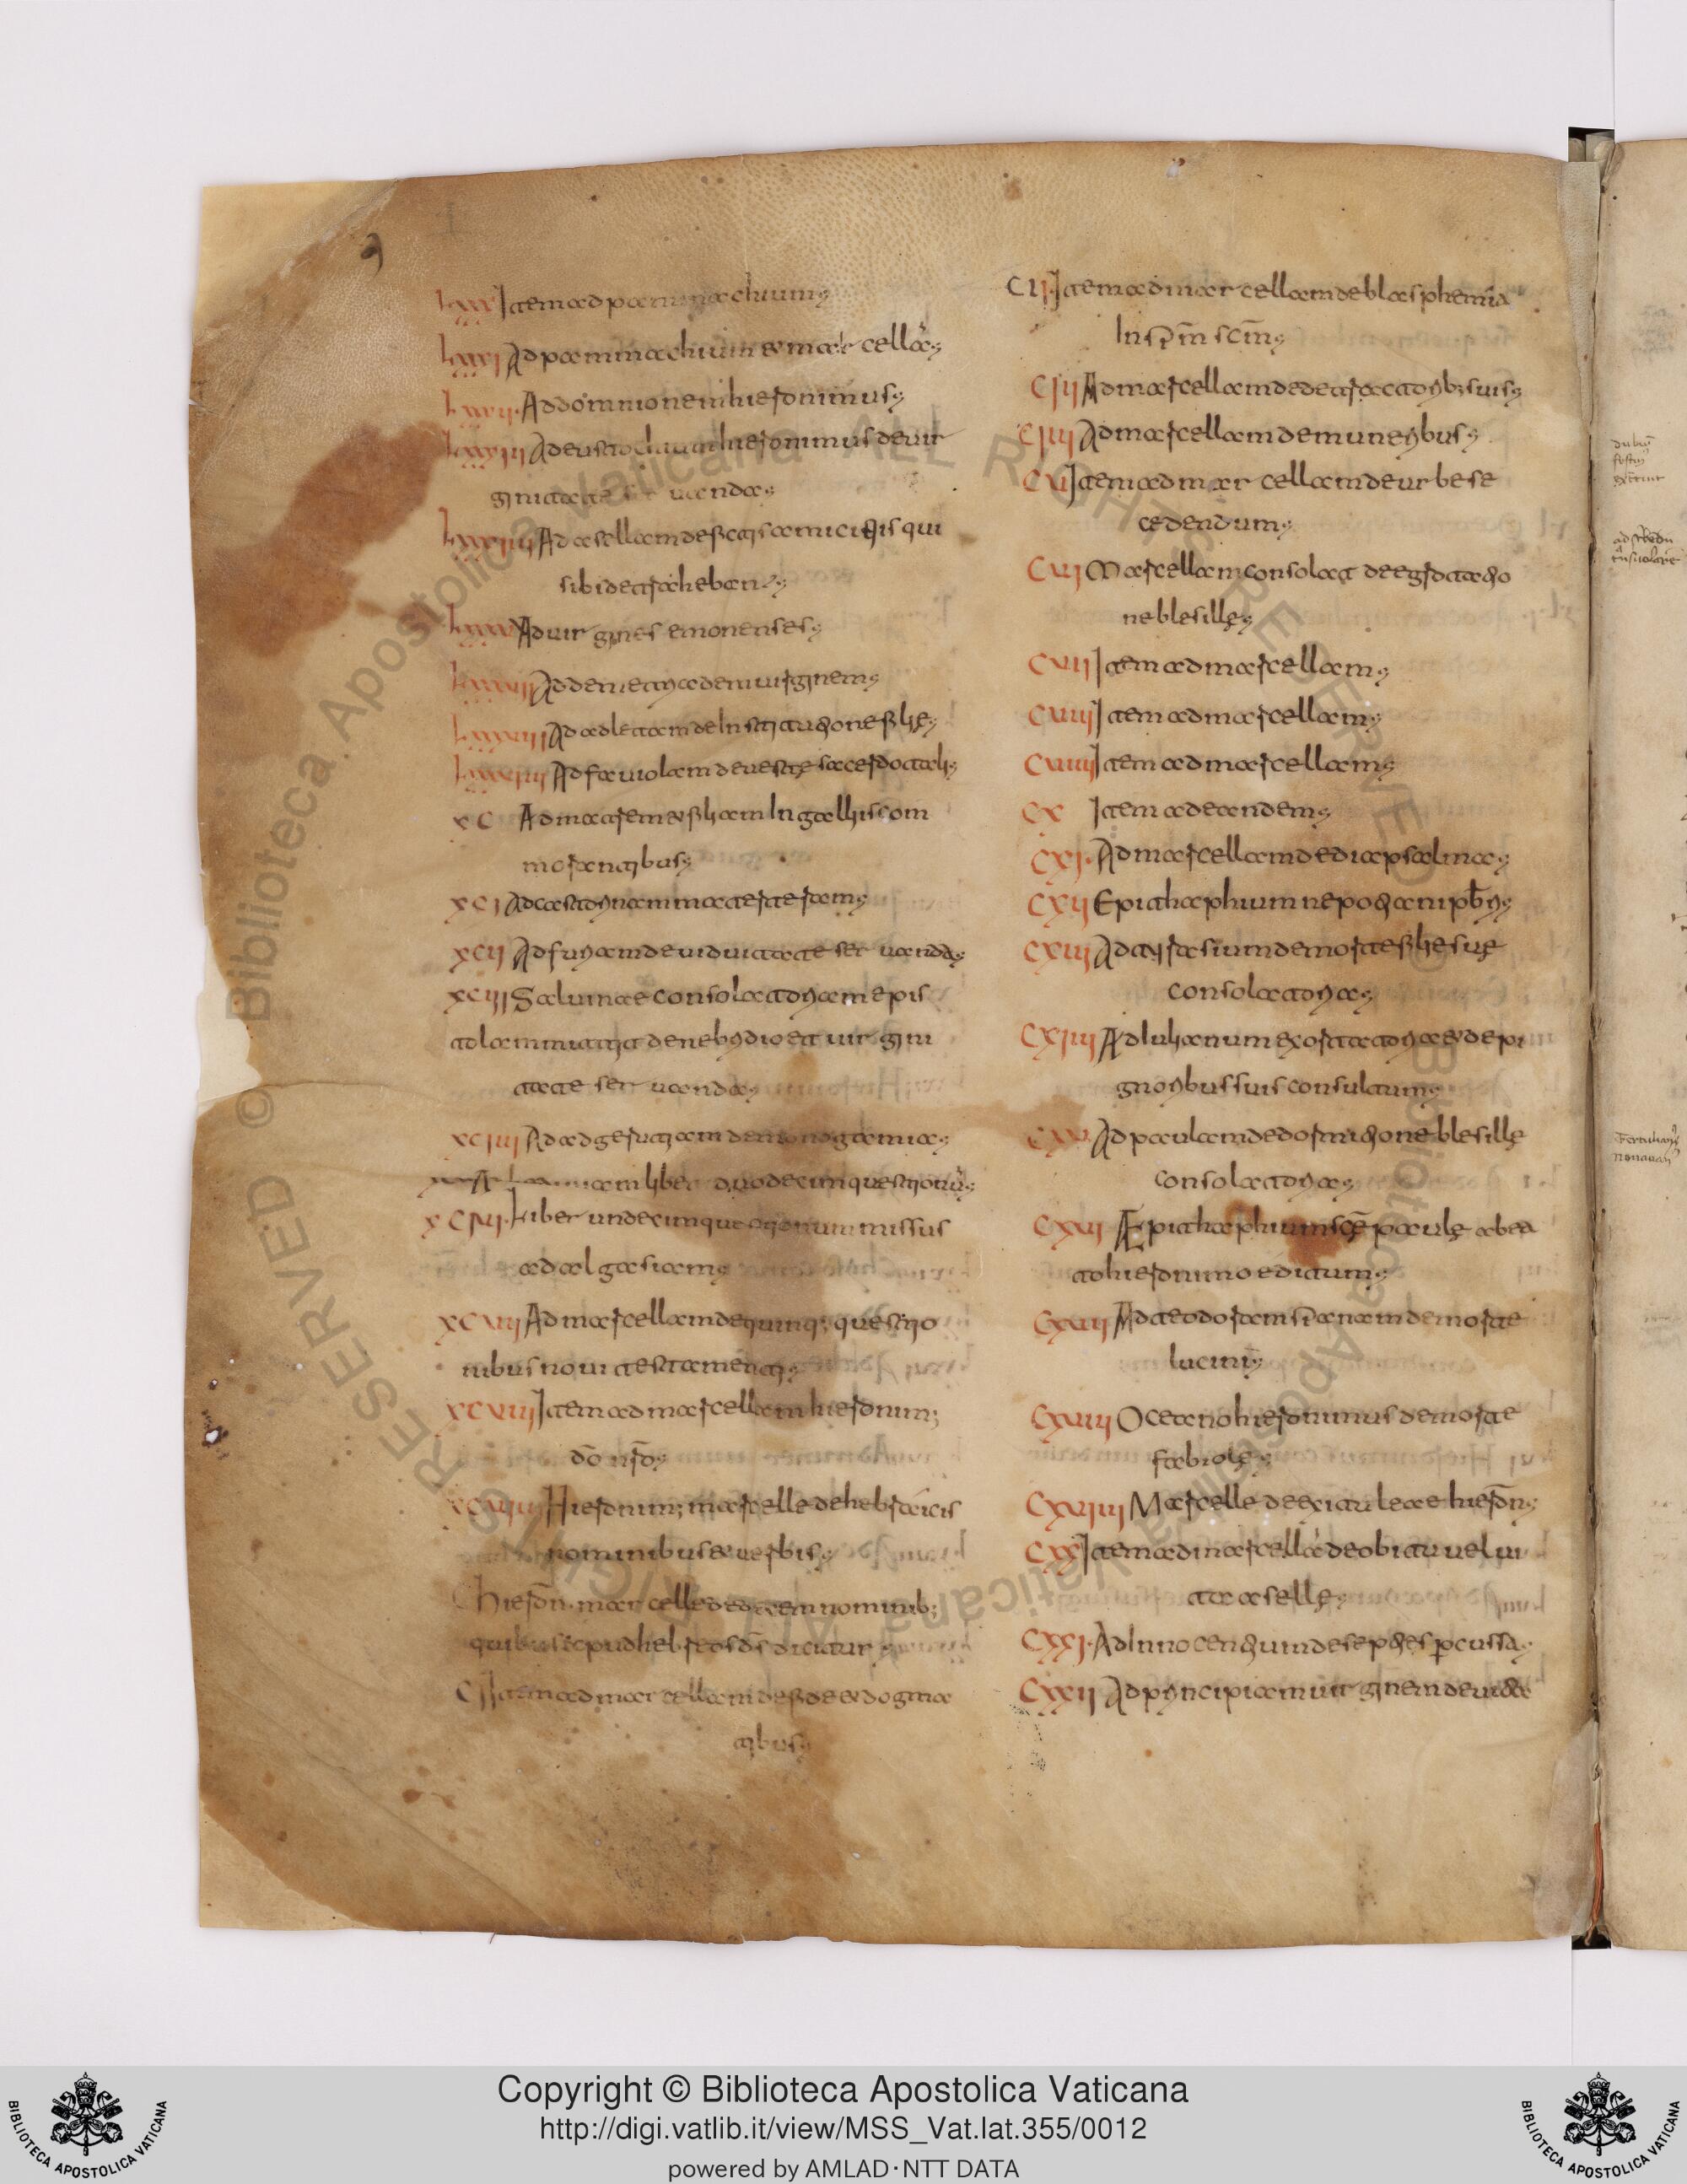 lxxx Item ad pammachium;
lxxxi Ad pammachium & marcellā;
lxxxii Ad domnionem hieronimus;
lxxxiii Ad eustochium hieronimus de uir
ginitate seruanda;
lxxxiiii Ad asellam de fictis amicitiis qui
sibi detrahebant;
Ad uirgines emonenses;
Ad demetriadem uirginem;
Ad adletam de institutione filie;
Ad fauiolam de ueste sacerdotali;
xc Ad matrem & filiam in galliis com
morantibus;
xci Ad castorinam materteram;
xcii Ad furiam de uiduitate seruandā;
xciii Saluinae consolatoriam epis
tolam mittit de nebridio et uirgini
tate seruanda;
xciiii Ad adgeruciam de monogamia;
liber duodecim questionū;
Liber undecim questionum missus
ad algasiam;
xcvii Ad marcellam de quinq; questio
nibus noui testamenti;
xcviii Item ad marcellam hieronim;
dō nrō;
xcviiii Hieronim; marcelle de hebraicis
nominibus & uerbis;
C hierōn. marcelle de decem nominib;
quibus apud hebreos dš dicitur;
CI Item ad marcellam de fide & dogma
tibus;
CII Item ad marcellam de blasphemia
In spm̄ scm̄;
CIII Ad marcellam de detractorib; suis;
CIIII Ad marcellam de muneribus;
CV Item ad marcellam de urbe se
cedendum;
CVI Marcellam consolat de egrotatio
ne blesille;
CVII Item ad marcellam;
CVIII Item ad marcellam;
CVIIII Item ad marcellam;
CX Item ad eandem;
CXI Ad marcellam de diapsalma;
CXII Epithaphium nepotiani pb̄ri;
CXIII Ad tyrasium de morte filie sue
consolatoria;
CXIIII Ad iulianum exortatoria & de pi
gnoribus suis consultum;
CXV Ad paulam de dormitione blesille
consolatoria;
CXVI Epithaphium scē paule a bea
to hieronimo edictum;
CXVII Ad teodoram spanam de morte
lucini;
CXVIII Oceano hieronimus de morte
fabiole;
CXVIIII Marcelle de exitu leae hierōn;
CXX Item ad marcellā de obitu uel ui
ta aselle;
CXXI Ad Innocentium de septies pcussa;
CXXII Ad principiam uirginem de uita
Copyright © Biblioteca Apostolica Vaticana
http://digi.vatlib.it/view/MSS_Vat.lat.355/0012
powered by AMLAD·NTT DATA